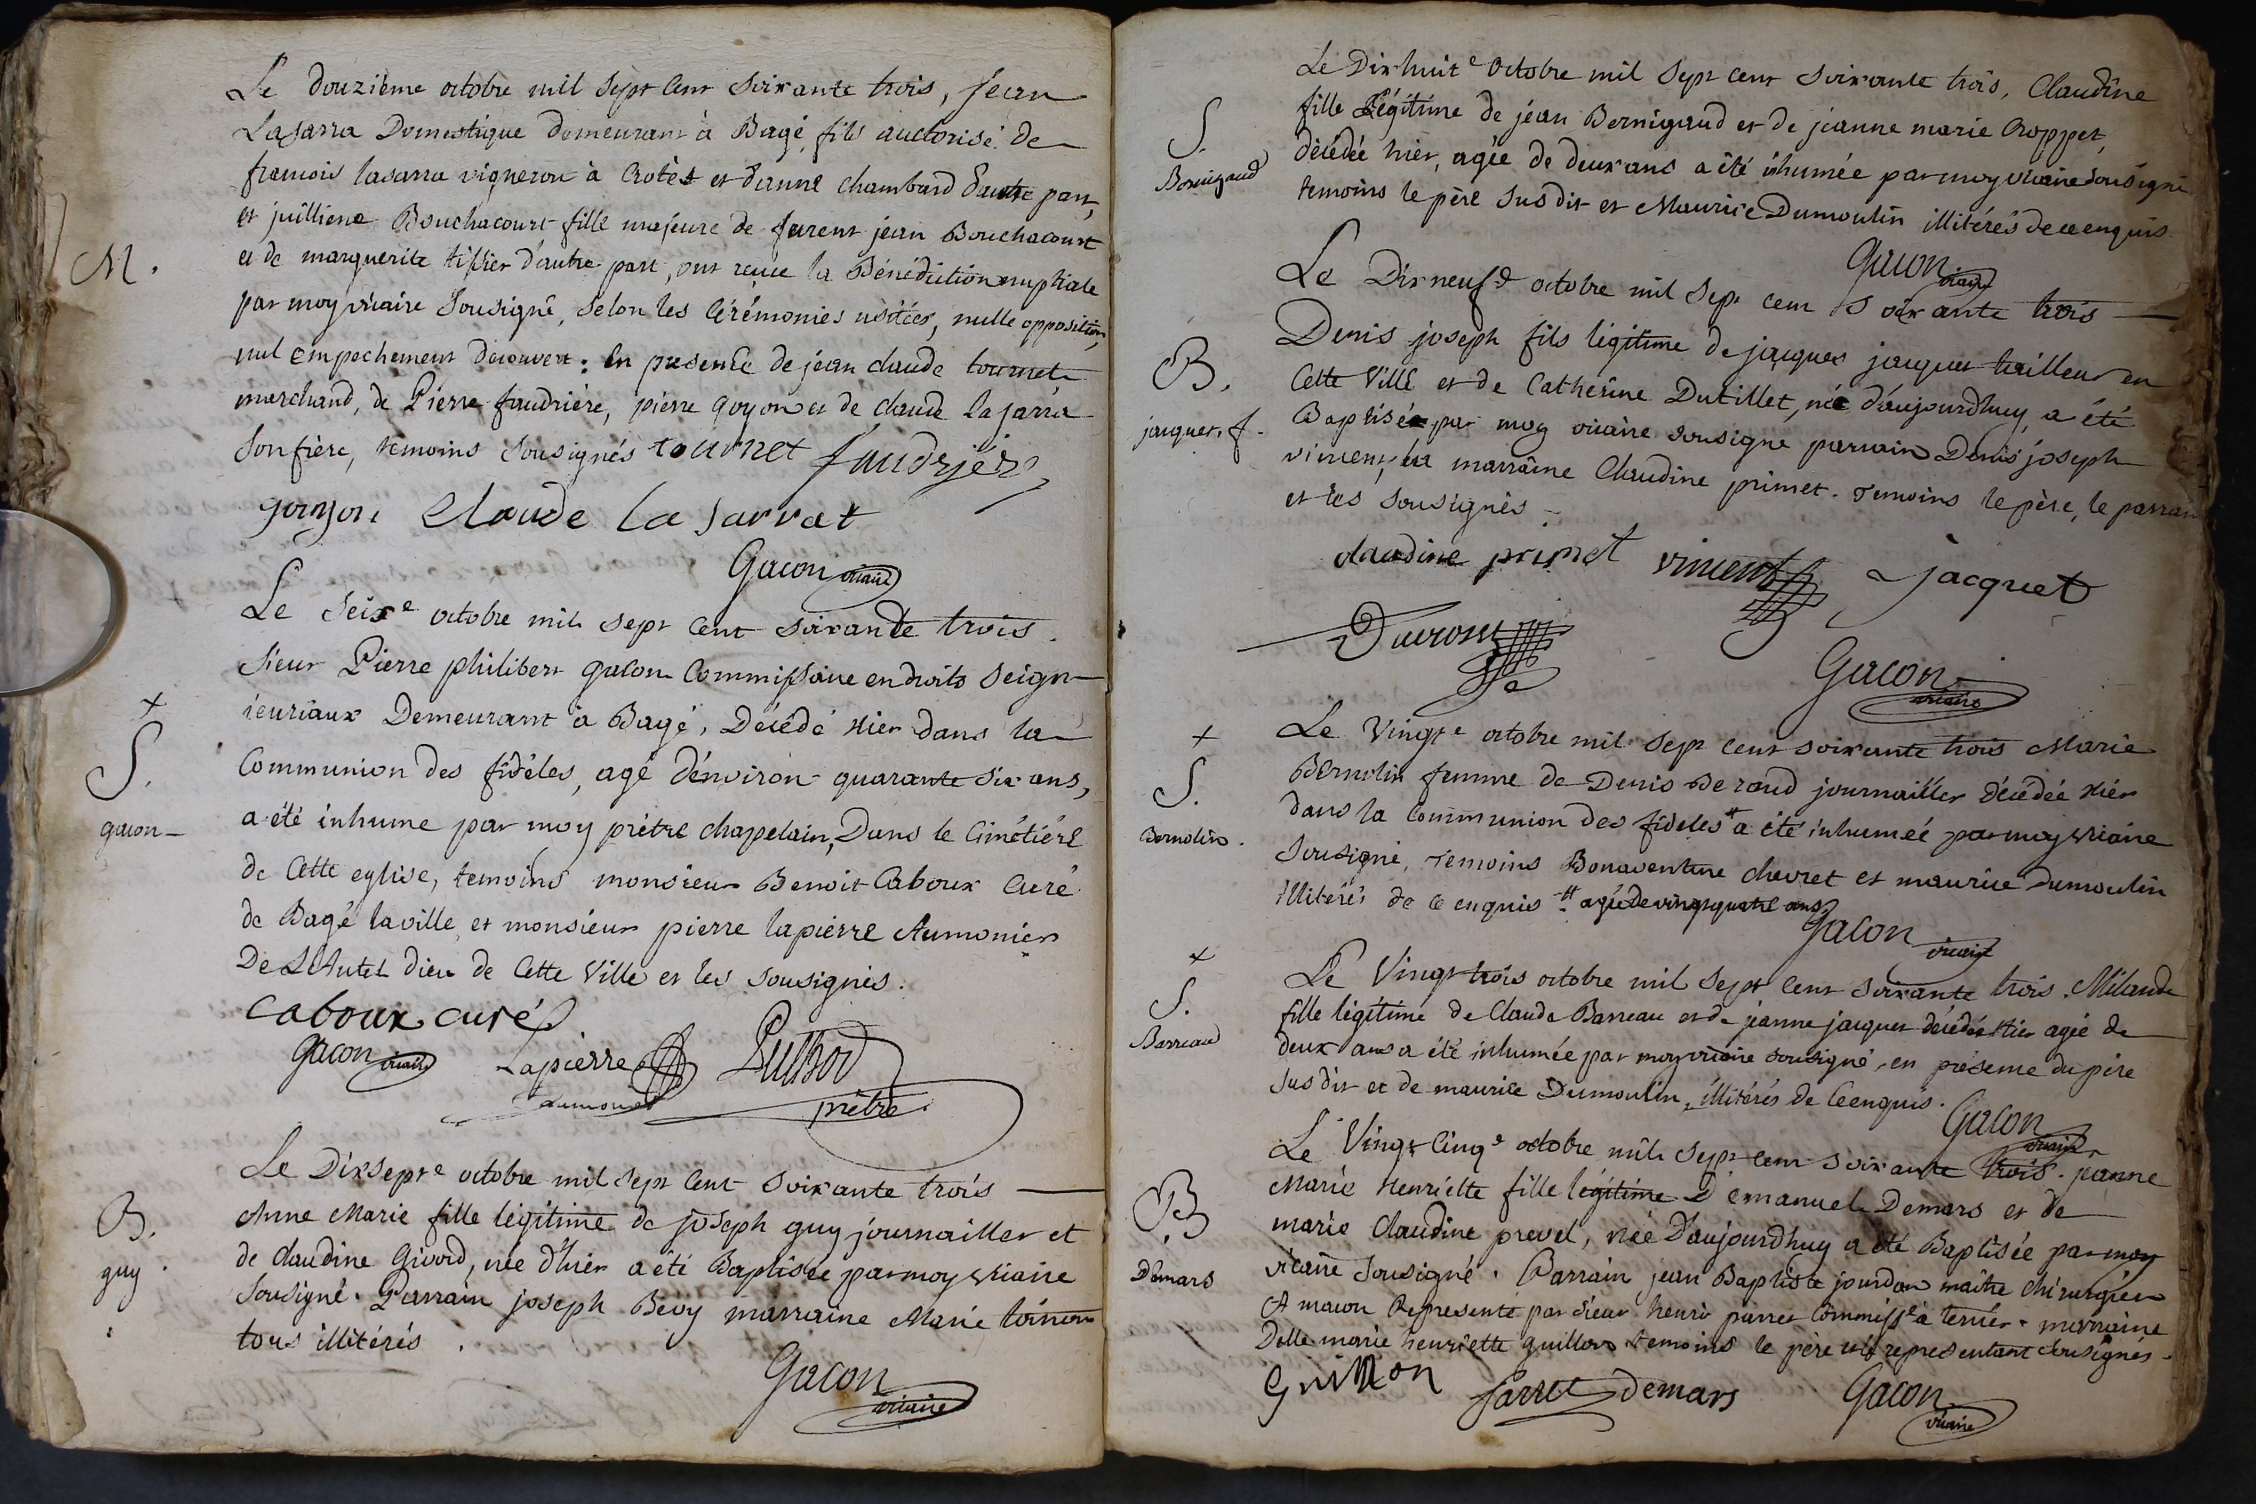 Le douzième octobre mil sept cent soixante trois, jean
Lasarra Domestique demeurant à Bagé, fils auctorisé de
francois lasarra vigneron à Crotet et d'anne chambard d'autre part,
et juilliene Bouchacourt fille majeure de furent jean Bouchacourt
et de marguerite tissier d'autre part, ont reçue la Bénédiction nuptiale
M.
par moy vicaire Sousigné, selon les Cérémonies usitées, nulle opposition,
nul empechement découvert: en presence de jean claude tournet
marchand, de Pierre faudrière, pierre goyon et de claude lasarra
son frère, temoins sousignés tournet faudrier
goiyon Claude la sarrat
Gacon vicaire
Le seize octobre mil sept cent soixante trois.
sieur Pierre philibert gacon Commissaire en droits seign-
ieuriaux Demeurant à Bagé, Décédé hier dans la
+
S.
gacon
Communion des fidèles, agé d'environ quarante six ans,
a été inhume par moy prêtre chapelain, Dans le Cimétière
de Cette eglise, temoins monsieur Benoit Caboux Curé
de Bagé la ville, et monsieur pierre lapierre Aumonier
De L'Autel dieu de Cette Ville et les sousignés.
Caboux curé
Gacon vicaire Lapierre aumonier Puthod prêtre
Le Dixsept^e octobre mil sept Cent soixante trois
Anne Marie fille légitime de joseph guy journailler et
B.
guy
de Claudine Givord, née d'hier a été Baptisée par moy vicaire
Sousigné. Parrain joseph Bevy marraine Marie
tous illitérés.
Gacon vicaire
Le Dixhuit^e Octobre mil sept cent soixante trois, Claudine
S.
Bernigaud
fille Légitime de jean Bernigaud et de jeanne marie Croppet,
décédée hier, agée de deux ans a été inhumée par moy vicaire sousigné
temoins le père susdit et Maurice Dumoulin illitérés de ce enquis.
Gacon vicaire
Le Dixneuf^e octobre mil sept cent soixante trois
Denis joseph fils légitime de jacques jacquet tailleur en
B.
jacquet. f.
Cette Ville et de Catherine Dutillet, né d'aujourdhuy, a été
Baptisé par moy vicaire sousigne parrain Denis joseph
vincent, la marraine Claudine primet. Temoins le père, le parrain
et les sousignés
claudine primet vincent jacquet
Gacon vicaire
+
S.
Bernolin.
Le Vingt^e octobre mil sept cent soixante trois Marie
Bernolin femme de Denis Beraud journailler décédée hier
dans la Communion des fideles # a été inhumeé par moy vicaire
Sousigné, Temoins Bonaventure chevret et maurice dumoulin
illitérés de ce enquis # agée de vingt quatre ans.
Gacon vicaire
+
S.
Barreau
Le Vingt trois octobre mil sept cent soixante trois. Milande
fille légitime de Claude Barreau et de jeanne jacquet décédée hier agée de
deux ans a été inhumée par moy vicaire sousigné, en présense du père
susdit et de maurice Dumoulin, illitérés de Ce enquis.
Gacon vicaire
Le Vingt Cinq^e octobre mil sept cent soixante trois. jeanne
B.
Demars
Marie Henriette fille légitime D'emanuel Demars et de
marie Claudine prevel, née D'aujourdhuy a été Baptisée par moy
vicaire Sousigné. Parrain jean Baptiste jourdan maître chirurgien
A macon Representé par sieur henri parret Commiss^e à terrier. marraine
Delle marie henriette guillon temoins le père et le representant sousignés.
Guillon parret demars Gacon vicaire